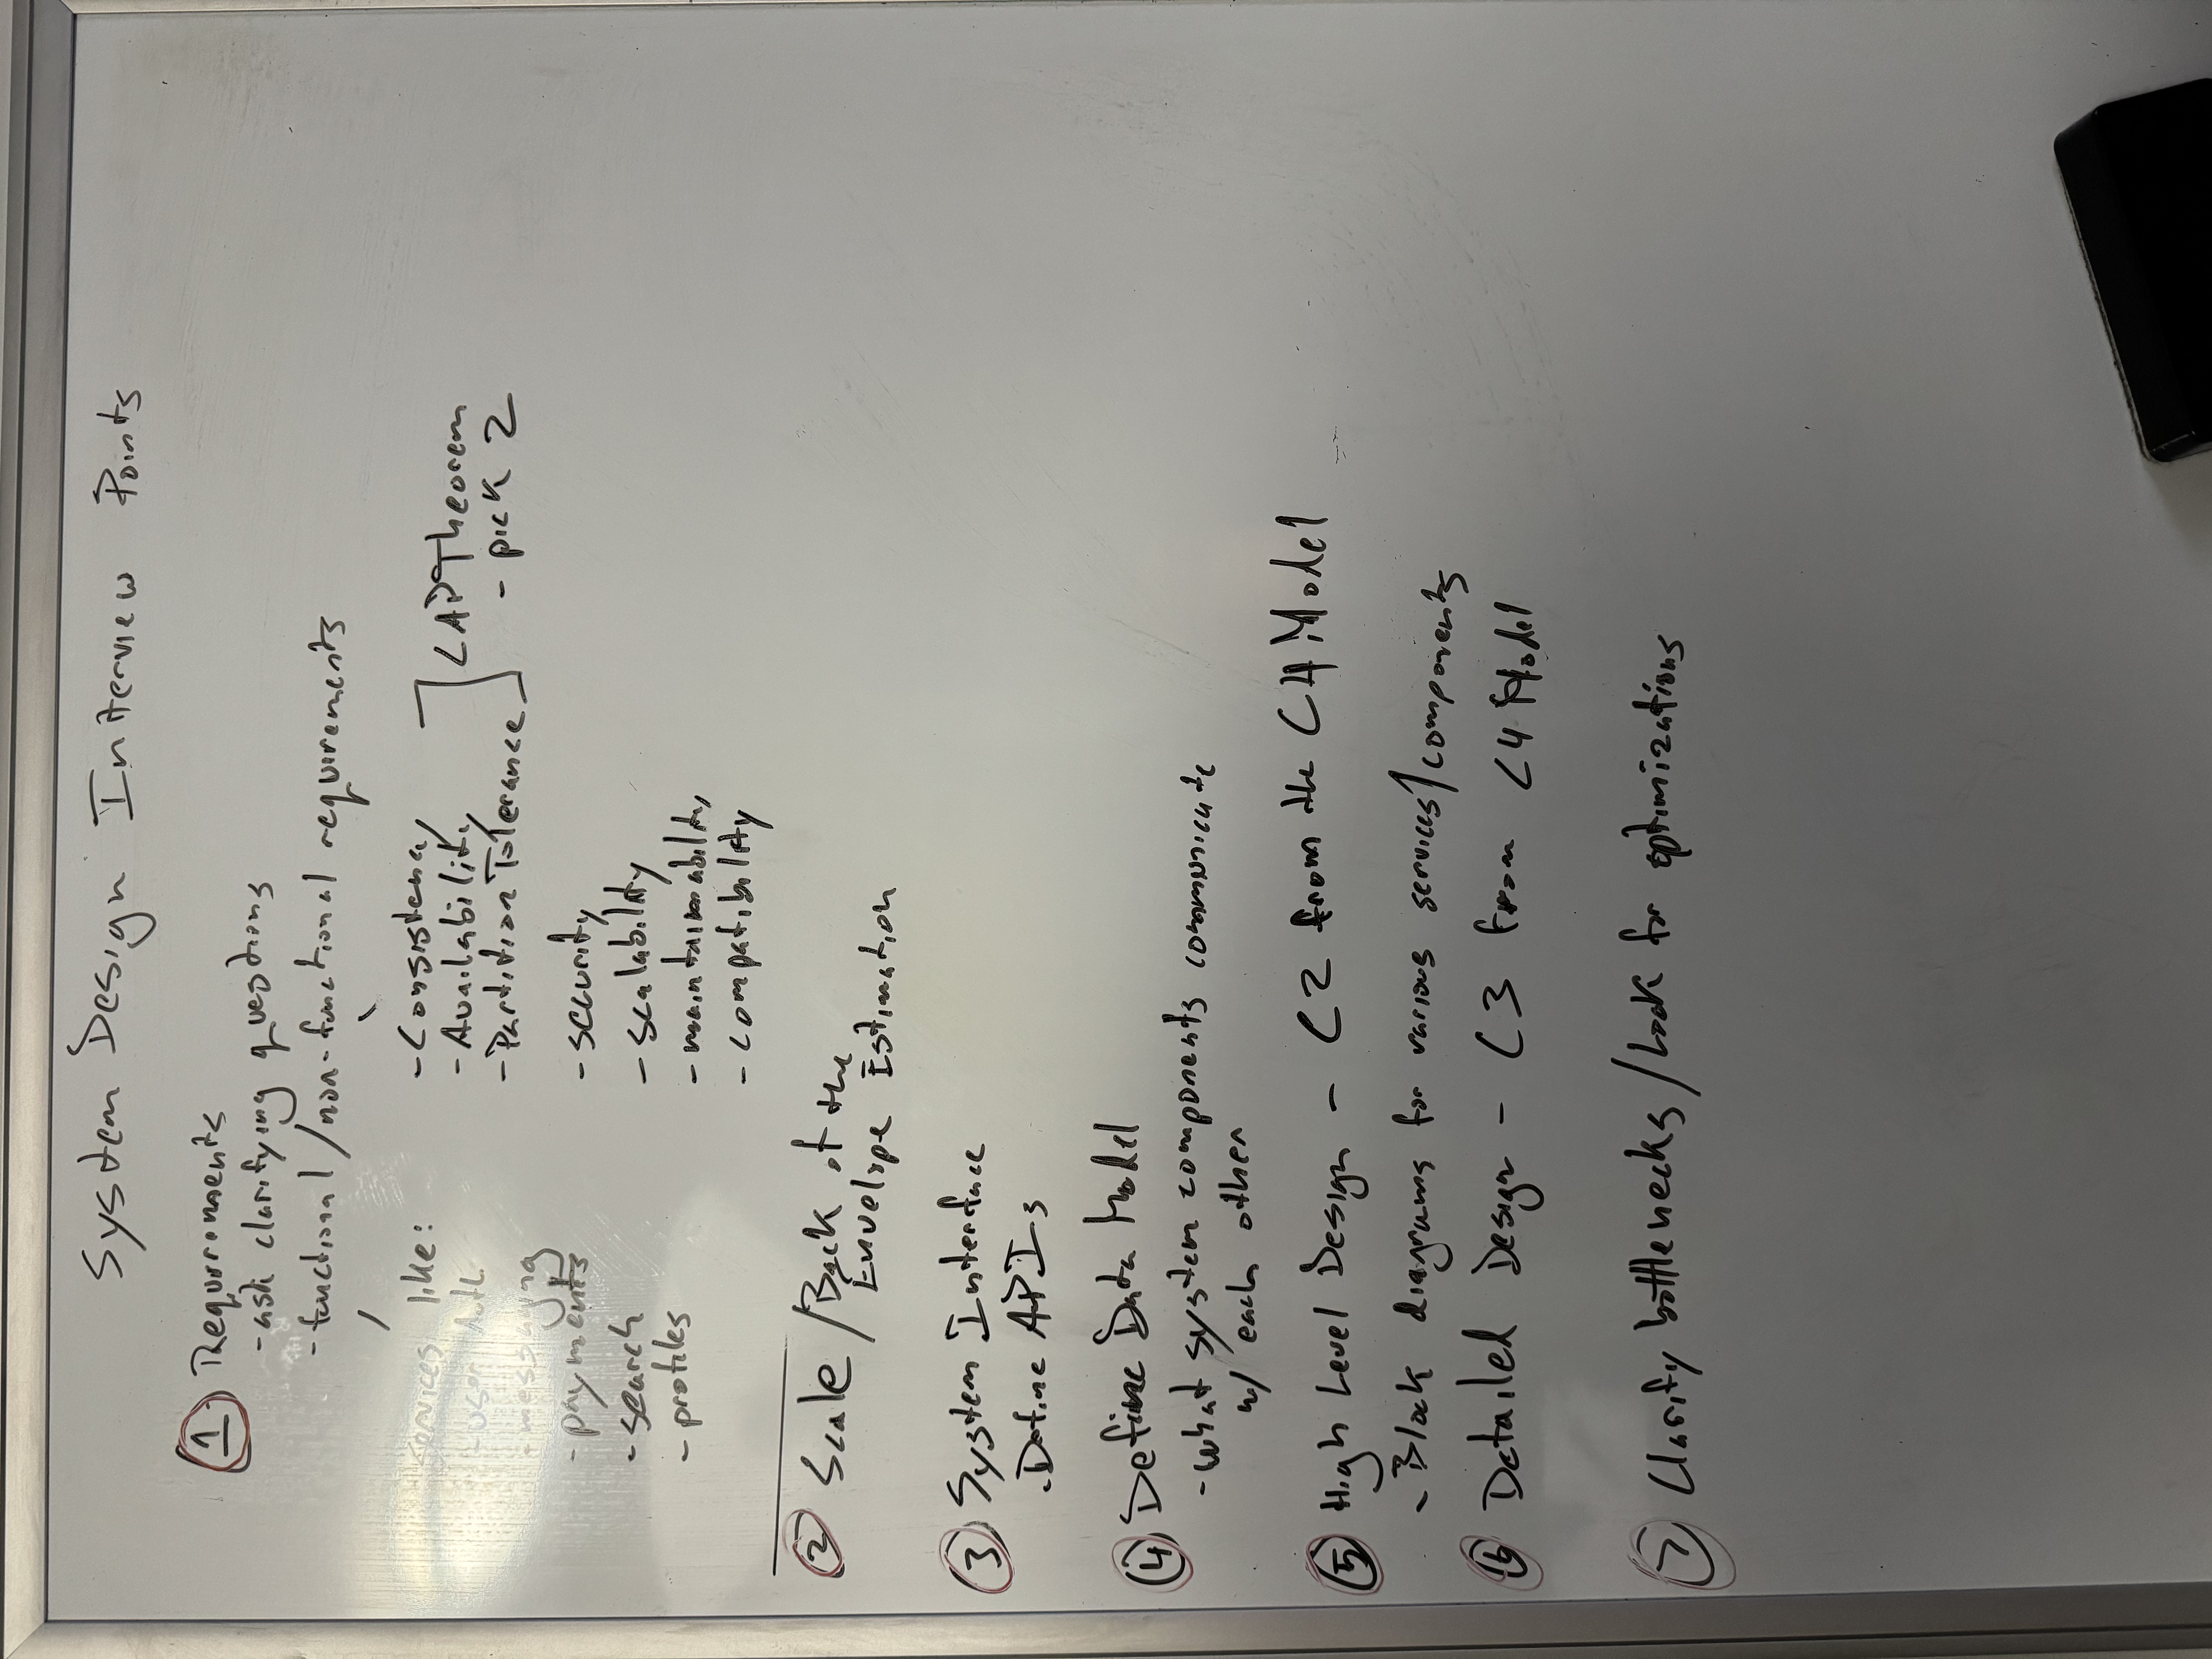 System Design Interview Points
1 Requirements
- ask clarifying questions
- functional / non-functional requirements
Services like:
- user Auth
- messaging
- payments
- search
- profiles
- Consistency
- Availability
- Partition Tolerance
CAP Theorem
- pick 2
- security
- scalability
- maintainability
- compatibility
2 Scale / Back of the
Envelope Estimation
3 System Interface
. Define APIs
4 Define Data Model
- what system components communicate
w/ each other
5 High Level Design - C2 from the C4 Model
- Block diagrams for various services/components
6 Detailed Design - C3 from C4 Model
7 Clarify bottlenecks / Look for optimizations